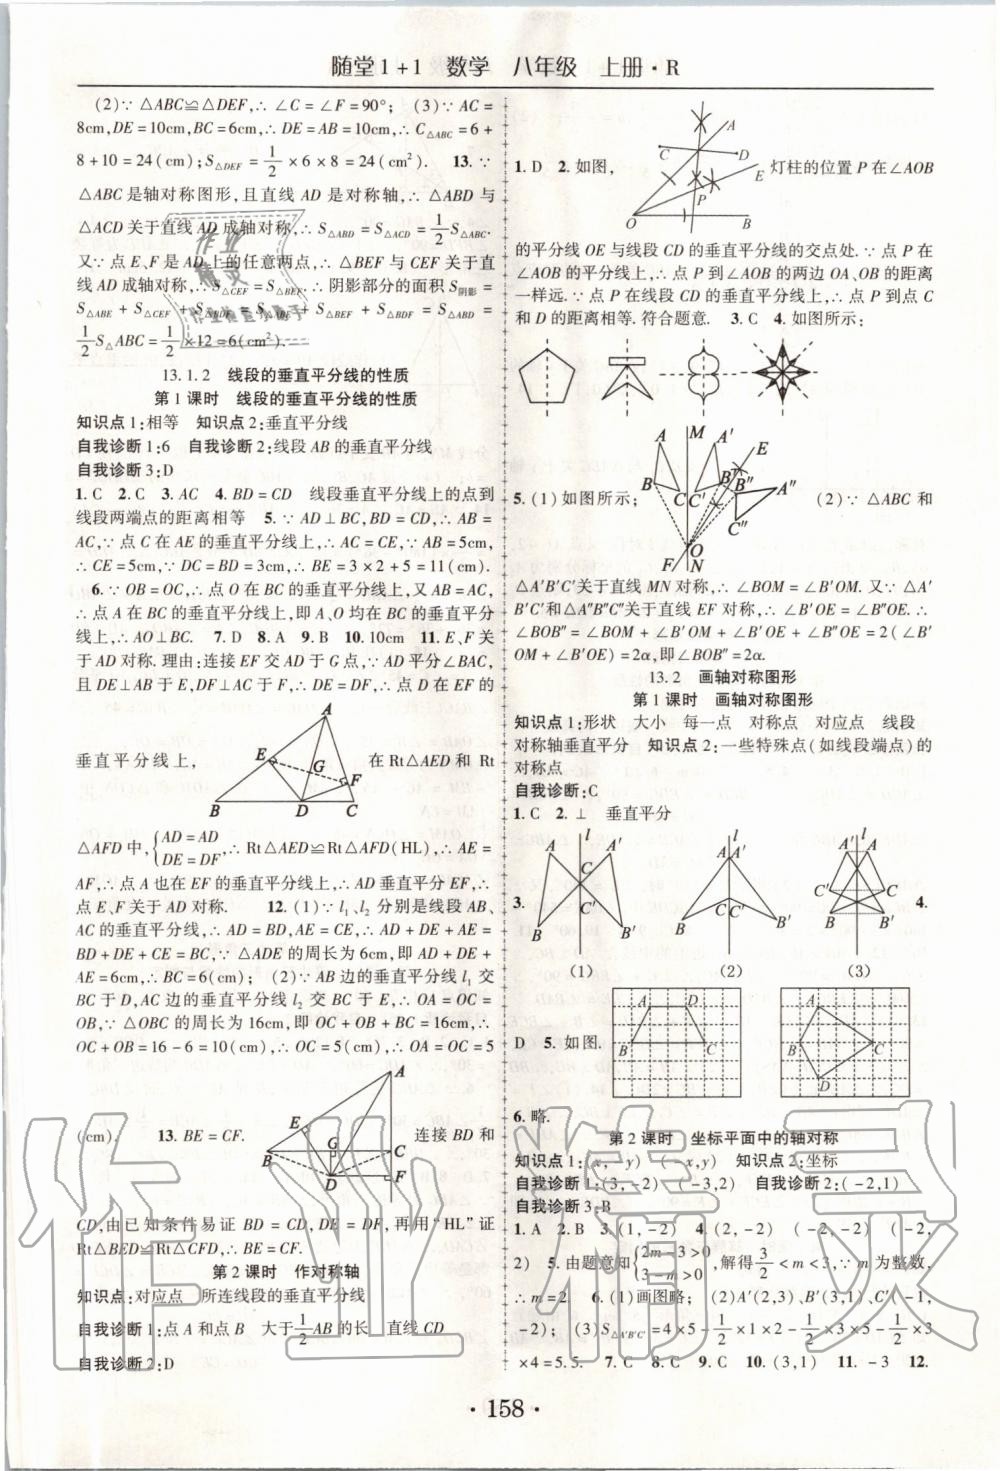 随堂1+1 数学 八年级 上册·R
(2)∵△ABC≌△DEF,∴∠C=∠F=90°;(3)∵AC=
8cm,DE=10cm,BC=6cm,∴DE=AB=10cm,∴C△ABC=6+
8+10=24(cm);S△DEF=1/2×6×8=24(cm²). 13.∵
△ABC是轴对称图形,且直线AD是对称轴,∴△ABD与
△ACD关于直线AD成轴对称,∴S△ABD=S△ACD=1/2S△ABC.
又∵点E、F是AD上的任意两点,∴△BEF与CEF关于直
线AD成轴对称,∴S△CEF=S△BEF.∴阴影部分的面积S阴影=
S△ABE+S△CEF+S△BDF=S△ABE+S△BEF+S△BDF=S△ABD=
1/2S△ABC=1/2×12=6(cm²).
13.1.2 线段的垂直平分线的性质
第1课时 线段的垂直平分线的性质
知识点1:相等 知识点2:垂直平分线
自我诊断1:6 自我诊断2:线段AB的垂直平分线
自我诊断3:D
1.C 2.C 3.AC 4.BD=CD 线段垂直平分线上的点到
线段两端点的距离相等 5.∵AD⊥BC,BD=CD,∴AB=
AC,∵点C在AE的垂直平分线上,∴AC=CE,∵AB=5cm,
∴CE=5cm,∵DC=BD=3cm,∴BE=3×2+5=11(cm).
6.∵OB=OC,∴点O在BC的垂直平分线上,又AB=AC,
∴点A在BC的垂直平分线上,即A、O均在BC的垂直平分
线上,∴AO⊥BC. 7.D 8.A 9.B 10.10cm 11.E、F关
于AD对称.理由:连接EF交AD于G点,∵AD平分∠BAC,
且DE⊥AB于E,DF⊥AC于F,∴DE=DF,∴点D在EF的
垂直平分线上,
A
E
G
F
B
D
C
在Rt△AED和Rt
△AFD中,{AD=AD DE=DF,∴Rt△AED≌Rt△AFD(HL),∴AE=
AF,∴点A也在EF的垂直平分线上,∴AD垂直平分EF,∴
点E、F关于AD对称. 12.(1)∵l₁、l₂分别是线段AB、
AC的垂直平分线,∴AD=BD,AE=CE,∴AD+DE+AE=
BD+DE+CE=BC,∵△ADE的周长为6cm,即AD+DE+
AE=6cm,∴BC=6(cm);(2)∵AB边的垂直平分线l₁交
BC于D,AC边的垂直平分线l₂交BC于E,∴OA=OC=
OB,∵△OBC的周长为16cm,即OC+OB+BC=16cm,∴
OC+OB=16-6=10(cm),∴OC=5(cm),∴OA=OC=5
(cm). 13.BE=CF.
A
E
G
B
C
D
F
连接BD和
CD,由已知条件易证BD=CD,DE=DF,再用“HL”证
Rt△BED≌Rt△CFD,∴BE=CF.
第2课时 作对称轴
知识点:对应点 所连线段的垂直平分线
自我诊断1:点A和点B 大于1/2AB的长 直线CD
自我诊断2:D
1.D 2.如图,
A
C
D
E
P
O
B
灯柱的位置P在∠AOB
的平分线OE与线段CD的垂直平分线的交点处.∵点P在
∠AOB的平分线上,∴点P到∠AOB的两边OA、OB的距离
一样远.∵点P在线段CD的垂直平分线上,∴点P到点C
和D的距离相等.符合题意. 3.C 4.如图所示:
5.(1)如图所示;
A M A′ E
B C C′ B′ B″ A″
C″
O
F N
(2)∵△ABC和
△A′B′C′关于直线MN对称,∴∠BOM=∠B′OM.又∵△A′
B′C′和△A″B″C″关于直线EF对称,∴∠B′OE=∠B″OE.∴
∠BOB″=∠BOM+∠B′OM+∠B′OE+∠B″OE=2(∠B′
OM+∠B′OE)=2α,即∠BOB″=2α.
13.2 画轴对称图形
第1课时 画轴对称图形
知识点1:形状 大小 每一点 对称点 对应点 线段
对称轴垂直平分 知识点2:一些特殊点(如线段端点)的
对称点
自我诊断:C
1.C 2.⊥ 垂直平分
3.
A l A′
C
B B′
(1)
l
A A′
C
B B′
(2)
A′ l A
C′ C
B B′
(3)
4.
D 5.如图.
A D
B C
A
B C
D
6.略.
第2课时 坐标平面中的轴对称
知识点1:(x,-y) (-x,y) 知识点2:坐标
自我诊断1:(3,-2) (-3,2) 自我诊断2:(-2,1)
自我诊断3:B
1.A 2.B 3.(1,-2) 4.(2,-2) (-2,-2) (-2,
2) 5.由题意知{2m-3>0 3-m>0,解得3/2<m<3,∵m为整数,
∴m=2. 6.(1)画图略;(2)A′(2,3)、B′(3,1)、C′(-1,
-2);(3)S△A′B′C′=4×5-1/2×1×2-1/2×3×5-1/2×3
×4=5.5. 7.C 8.C 9.C 10.(3,1) 11.-3 12.
·158·
作业精灵